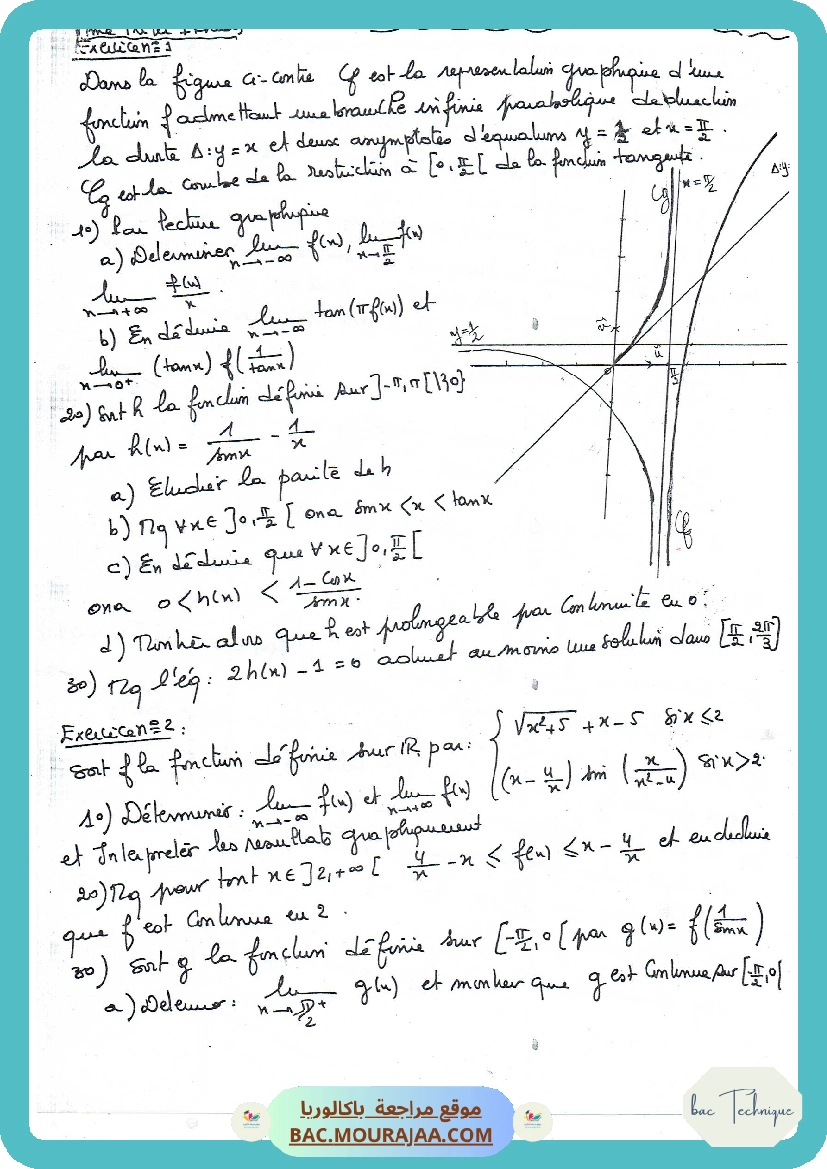 Exercice n°1
Dans la figure ci-contre Cf est la representation graphique d'une
fonction f admettant une branche infinie parabolique de direction
la droite Δ: y = x et deux asymptotes d'équations y = 1/2 et x = π/2.
Cg est la courbe de la restriction à [0, π/2[ de la fonction tangente.
1°) Par lecture graphique
a) Determiner lim x→-∞ f(x), lim x→π/2 f(x)
lim x→+∞ f(x)/x .
b) En déduire lim x→-∞ tan(π f(x)) et
lim x→0+ (tan x) f(1/tan x)
2°) Soit h la fonction définie sur ]-π, π[ \ {0}
par h(x) = 1/sin x - 1/x
a) Etudier la parité de h
b) Mq ∀x ∈ ]0, π/2[ on a sin x < x < tan x
c) En déduire que ∀x ∈ ]0, π/2[
on a 0 < h(x) < (1 - cos x)/sin x.
d) Montrer alors que h est prolongeable par continuité en 0.
3°) Mq l'éq: 2h(x) - 1 = 0 admet au moins une solution dans [π/2, 2π/3]
Δ: y:
Cg
x = π/2
y = 1/2
v
u
o
Cf
Exercice n°2 :
Soit f la fonction définie sur IR par: { √(x²+5) + x - 5 si x ≤ 2
(x - 4/x) sin (x/(x²-4)) si x > 2.
1°) Déterminer : lim x→-∞ f(x) et lim x→+∞ f(x)
et Interpreter les resultats graphiquement
2°) Mq pour tout x ∈ ]2, +∞[ 4/x - x ≤ f(x) ≤ x - 4/x et en déduire
que f est continue en 2 .
3°) Soit g la fonction définie sur [-π/2, 0[ par g(x) = f(1/sin x)
a) Determiner : lim g(x) et montrer que g est continue sur [-π/2, 0[
موقع مراجعة باكالوريا
BAC.MOURAJAA.COM
bac Technique